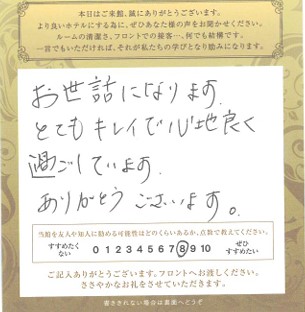 本日はご来館、誠にありがとうございます。
より良いホテルにする為に、ぜひあなた様の声をお聞かせください。
ルームの清潔さ、フロントでの接客…、何でも結構です。
一言でもいただければ、それが私たちの学びとなり励みになります。
お世話になります。
とてもキレイで心地良く
過ごしています。
ありがとうございます。
当館を友人や知人に勧める可能性はどのくらいあるか、点数で教えてください。
すすめたくない 0 1 2 3 4 5 6 7 8 9 10 ぜひすすめたい
ご記入ありがとうございます。フロントへお渡しください。
ささやかなお礼をさせていただきます。
書ききれない場合は裏面へどうぞ